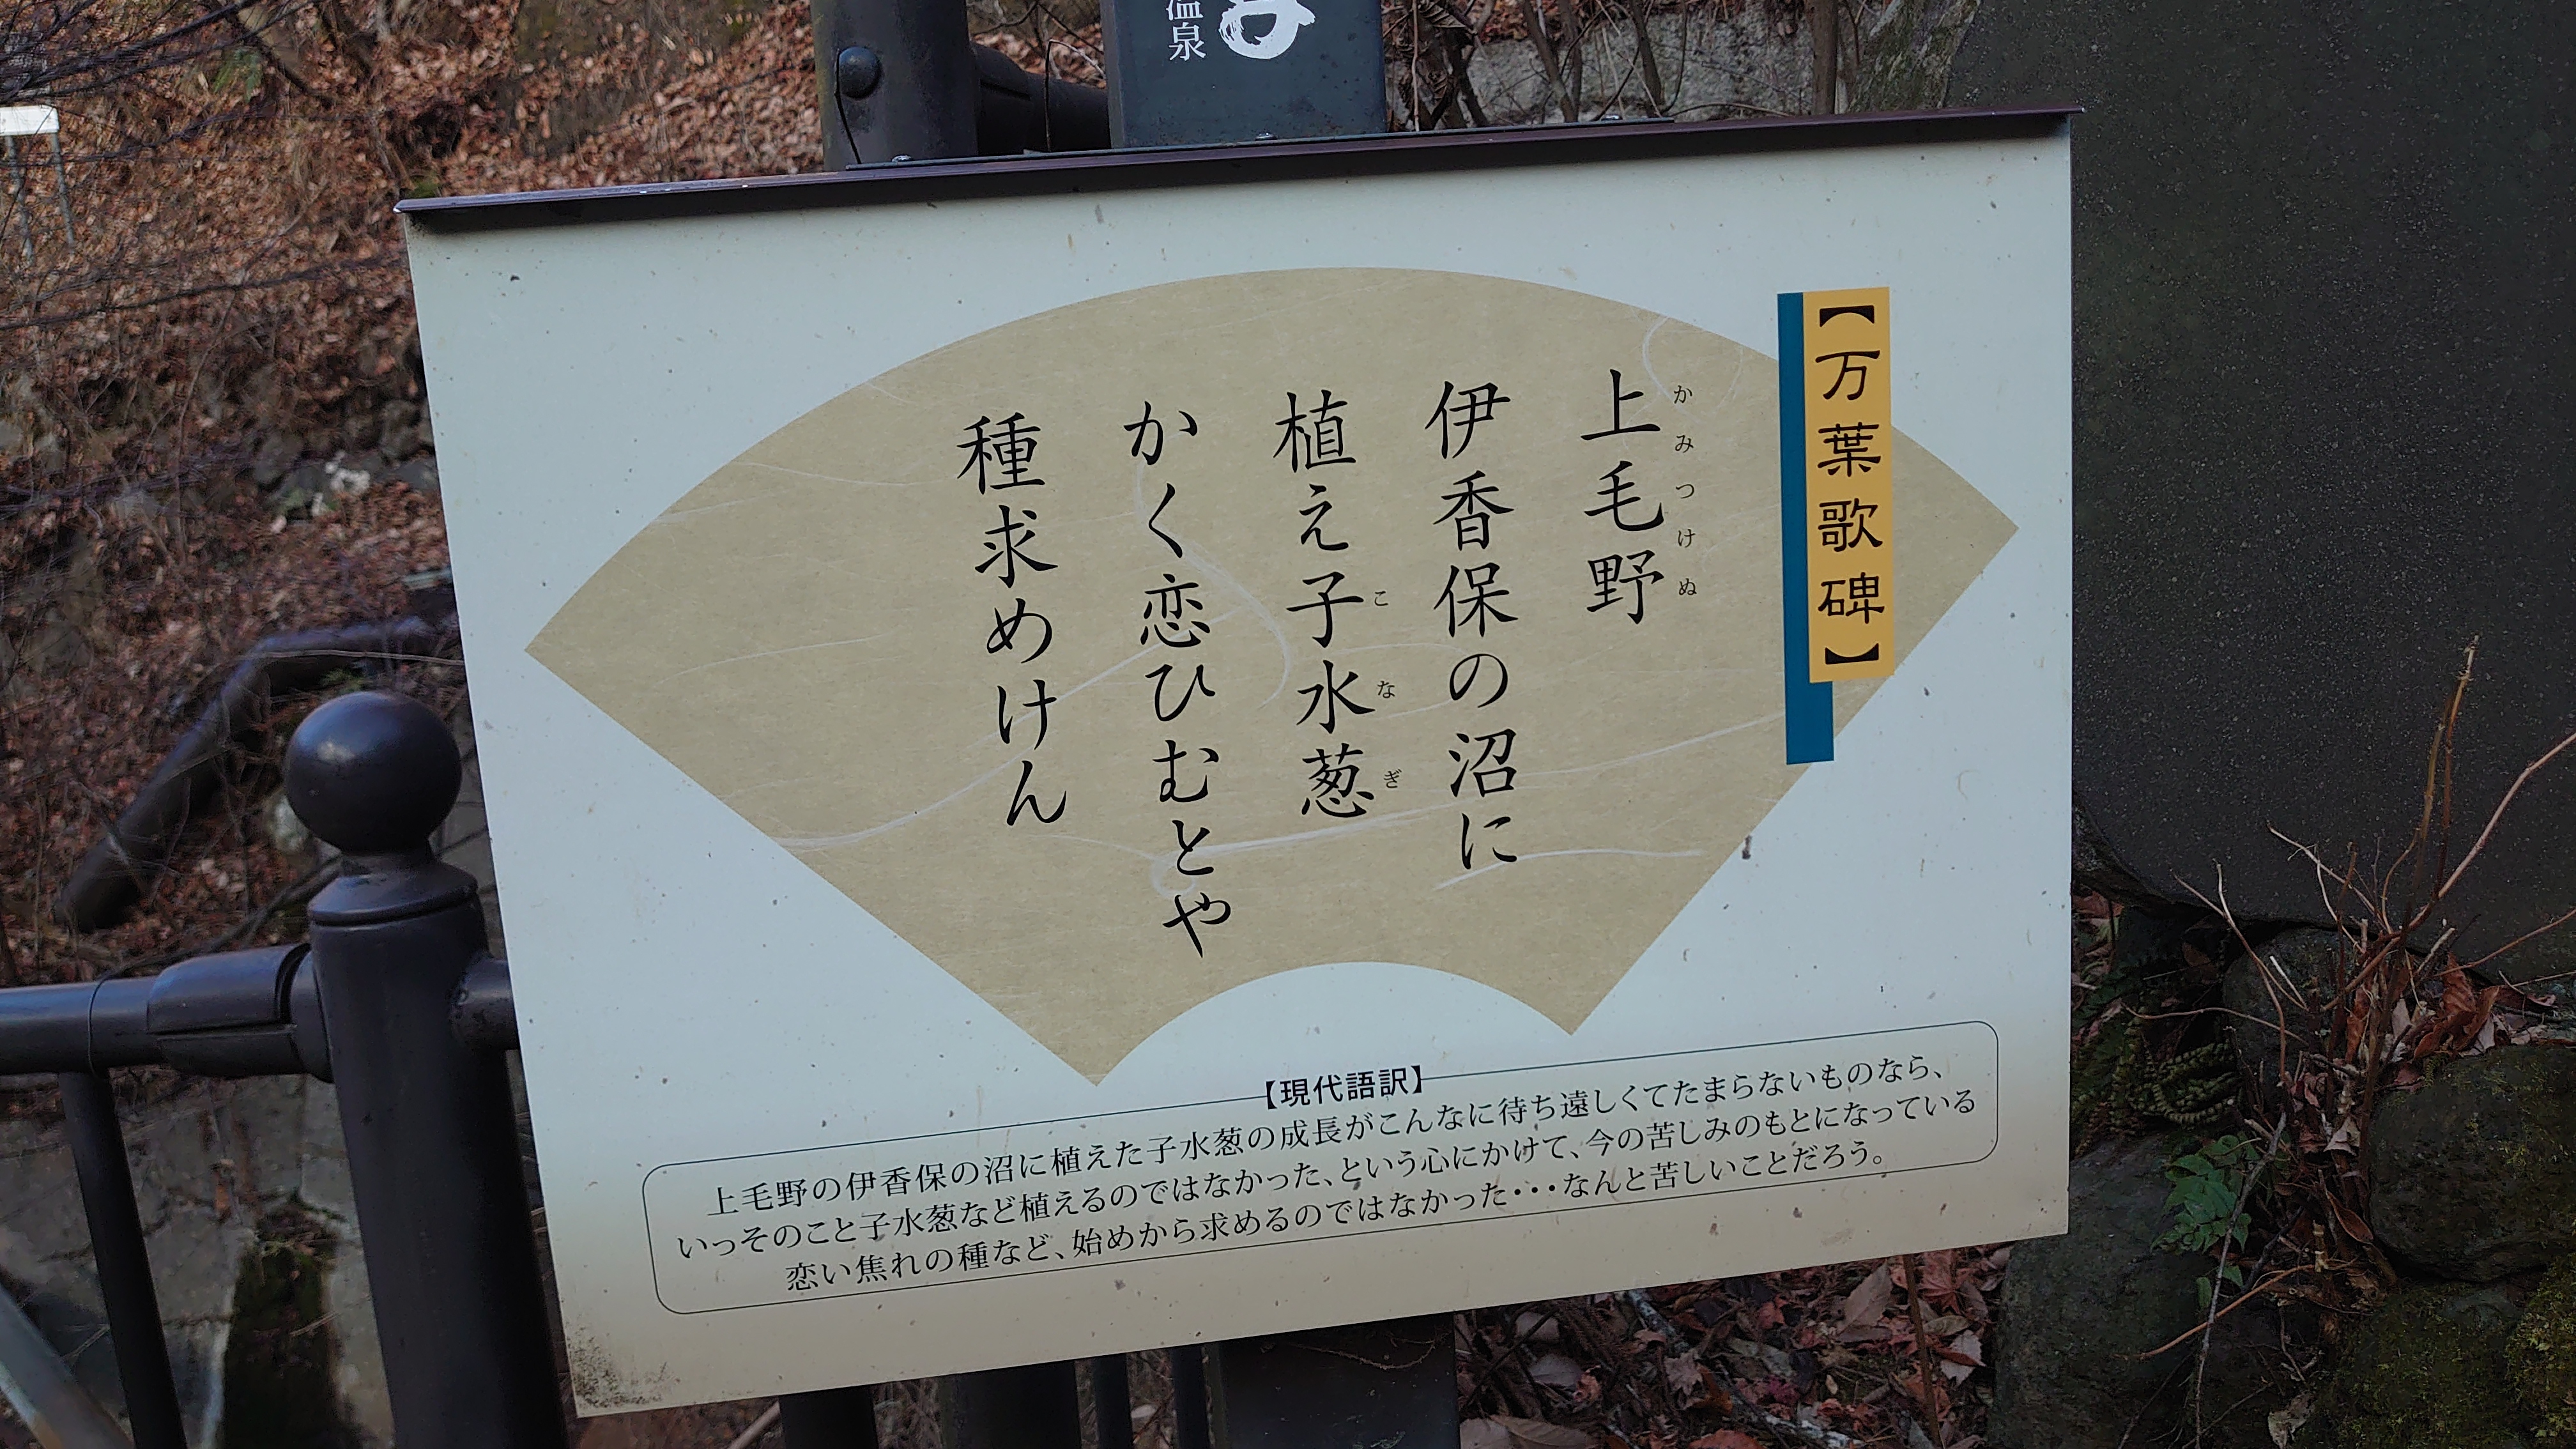 温泉
【万葉歌碑】
上毛野
かみつけぬ
伊香保の沼に
植え子水葱
こなぎ
かく恋ひむとや
種求めけん
【現代語訳】
上毛野の伊香保の沼に植えた子水葱の成長がこんなに待ち遠しくてたまらないものなら、
いっそのこと子水葱など植えるのではなかった、という心にかけて、今の苦しみのもとになっている
恋い焦れの種など、始めから求めるのではなかった・・・なんと苦しいことだろう。